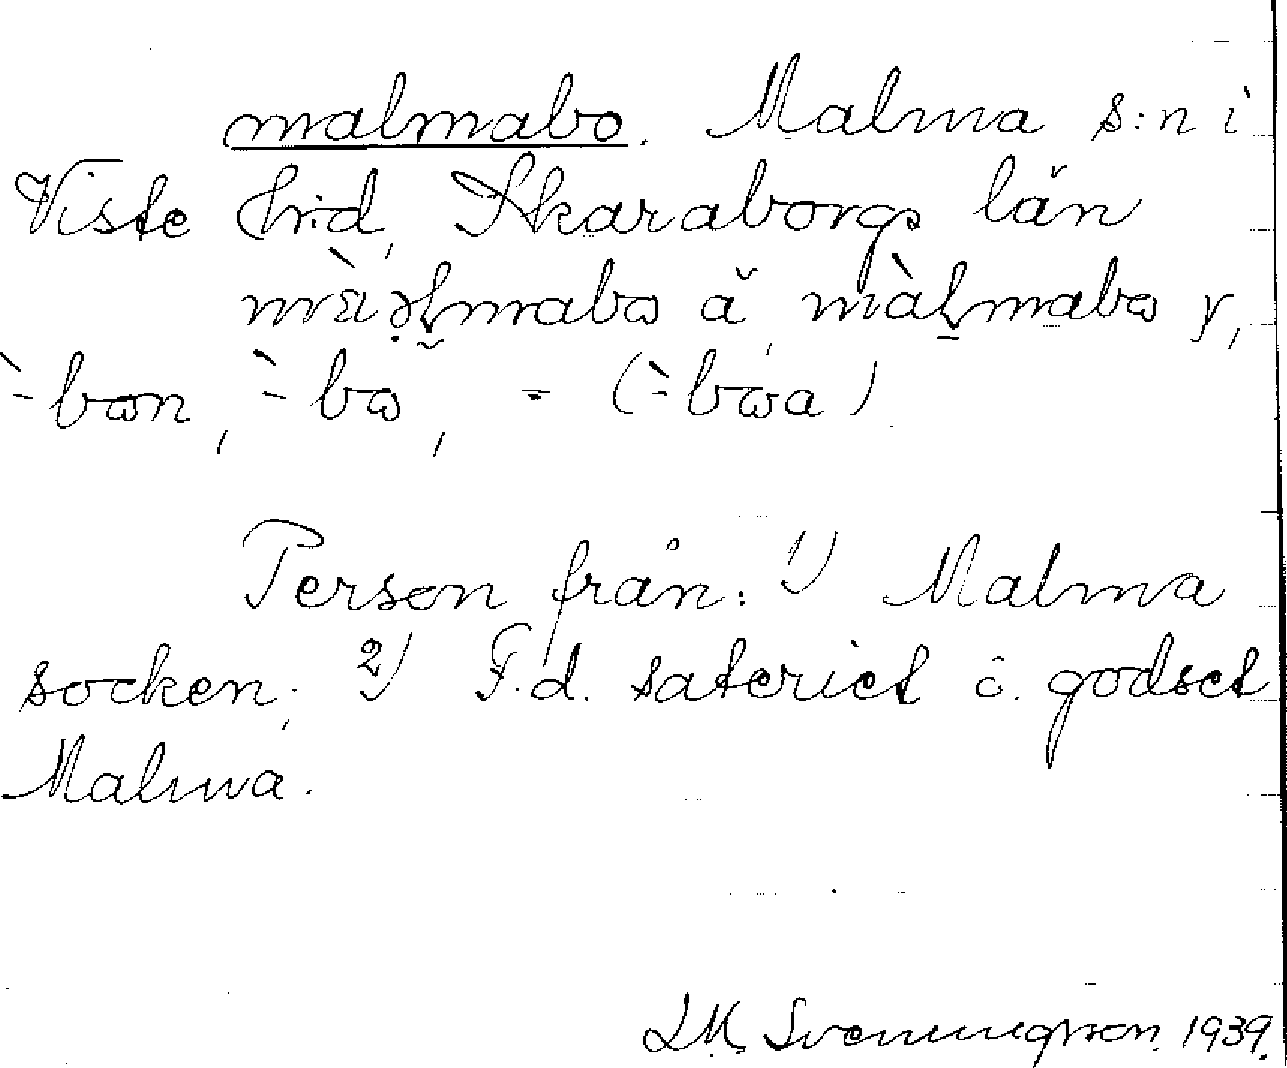 malmabo. Malma s:n i
Viste hrd, Skaraborgs län
mɛ̀ıəɭmabɷ ä, màɭmabɷ y,
`-bɷn, `-bɷ, - (`-bɷa)
Person från: 1) Malma
socken; 2) F.d. säteriet o. godset
Malma.
L.M. Svenungsson. 1939.